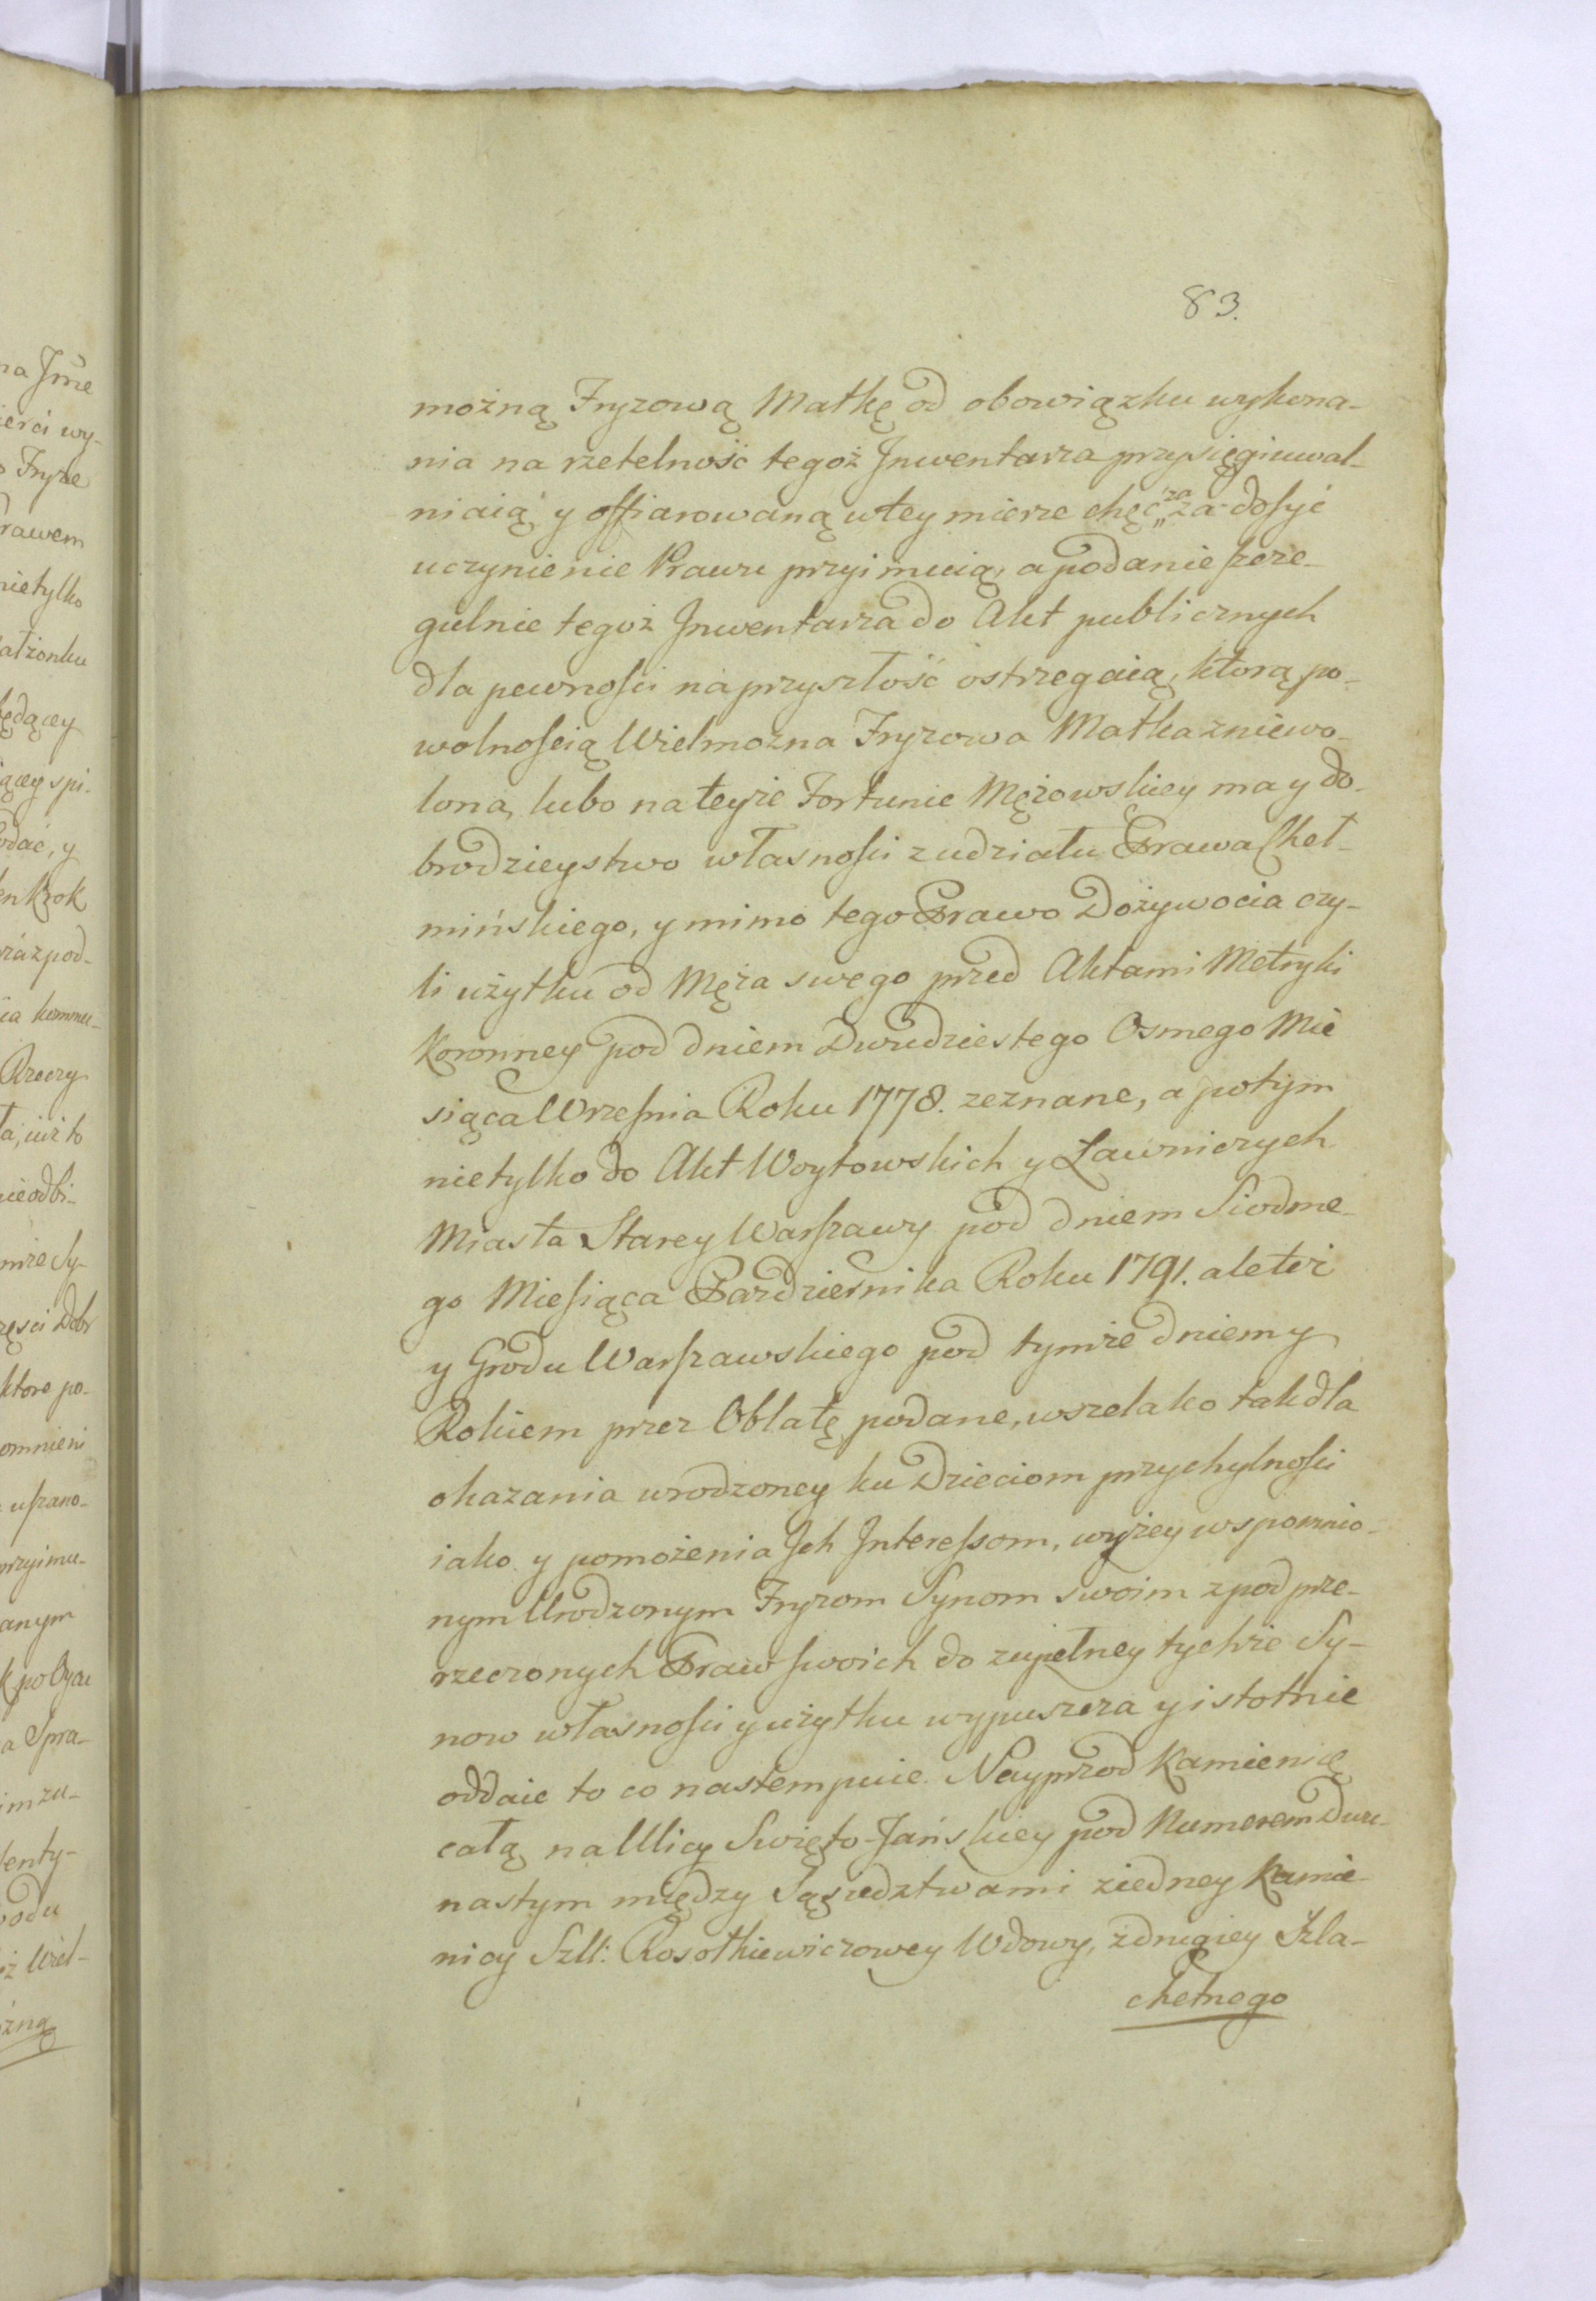 83.
możną Fryzową Matkę od obowiązku wykona-
nia na rzetelność tegoż Jnwentarza przysięgi uwal-
niaią, y offiarowaną w tey mierze chęć „za za dosyć
uczynienie Prawu przyimuią, a podanie szcze-
gulnie tegoż Jnwentarza do Akt publicznych
dla pewności na przyszłość ostrzegaią, ktorą po-
wolnością Wielmożna Fryzowa Matka zniewo-
lona, lubo na teyże Fortunie Mężowskiey ma y do-
brodzieystwo własności z udziału Prawa Cheł-
mińskiego, y mimo tego Prawo Dożywocia czy-
li użytku od Męża swego przed Aktami Metryki
Koronney pod dniem Dwudziestego Osmego Mie
siąca Września Roku 1778. zeznane, a potym
nietylko do Akt Woytowskich y Ławniczych
Miasta Starey Warszawy pod dniem Siodme-
go Miesiąca Pazdziernika Roku 1791. ale też
y Grodu Warszawskiego pod tymże dniem y
Rokiem przez Oblatę podane, wszelako tak dla
okazania wrodzoney ku Dzieciom przychylności
iako y pomożenia Jch Jnteressom, wyżey wspomnio-
nym Urodzonym Fryzom Synom swoim z pod prze-
rzeczonych Praw swoich do zupełney tychże Sy-
now własności y użytku wypuszcza y istotnie
oddaie to co nastempuie. Nayprzod Kamienicę
całą na Ulicy Swięto-Jańskiey pod Numerem Dwu-
nastym między Sąsiedztwami z iedney Kamie-
nicy Szll: Rosołkiewiczowey Wdowy, z drugiey Szla-
chetnego
na Jmę
ierci wy-
Fryze
rawem
nietylko
ałżonku
ędącey
ącey spi-
odać, y
en krok
ráz pod-
ia kommu-
Rzeczy
ła, iuż to
nieodbi-
mże Sy-
zęsci Dobr
ktore po-
omnieni
uszano-
przyimu-
anym
k po Oycu
a Spra-
im zu-
enty-
odu
ż Wiel-
żną